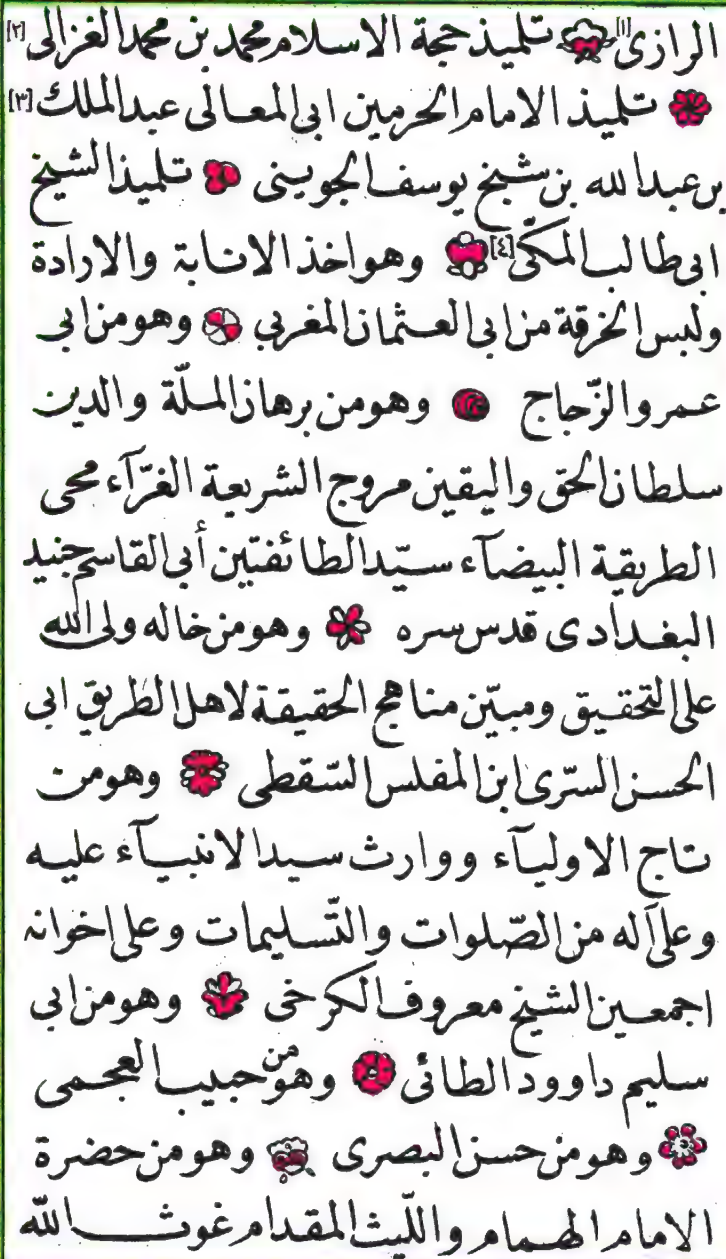 الرازى[١] تلميذ حجة الاسلام محمد بن محمد الغزالى[٢]
تلميذ الامام الحرمين ابى المعالى عبد الملك[٣]
بن عبد الله بن شيخ يوسف الجوينى تلميذ الشيخ
ابى طالب المكّى[٤] وهو اخذ الانابة والارادة
ولبس الخرقة من ابى العثمان المغربى وهو من ابى
عمرو الزّجاج وهو من برهان الملّة والدين
سلطان الحق واليقين مروج الشريعة الغرّآء محى
الطريقة البيضآء سيّد الطائفتين أبى القاسم جنيد
البغدادى قدس سره وهو من خاله ولى الله
على التحقيق ومبيّن مناهج الحقيقة لاهل الطريق ابى
الحسن السّرى ابن المفلس السّقطى وهو من
تاج الاوليآء ووارث سيد الانبيآء عليه
وعلى آله من الصّلوات والتّسليمات وعلى اخوانه
اجمعين الشيخ معروف الكرخى وهو من ابى
سليم داوود الطائى وهو من حبيب العجمى
وهو من حسن البصرى وهو من حضرة
الامام الهمام والليّث المقدام غوث الله